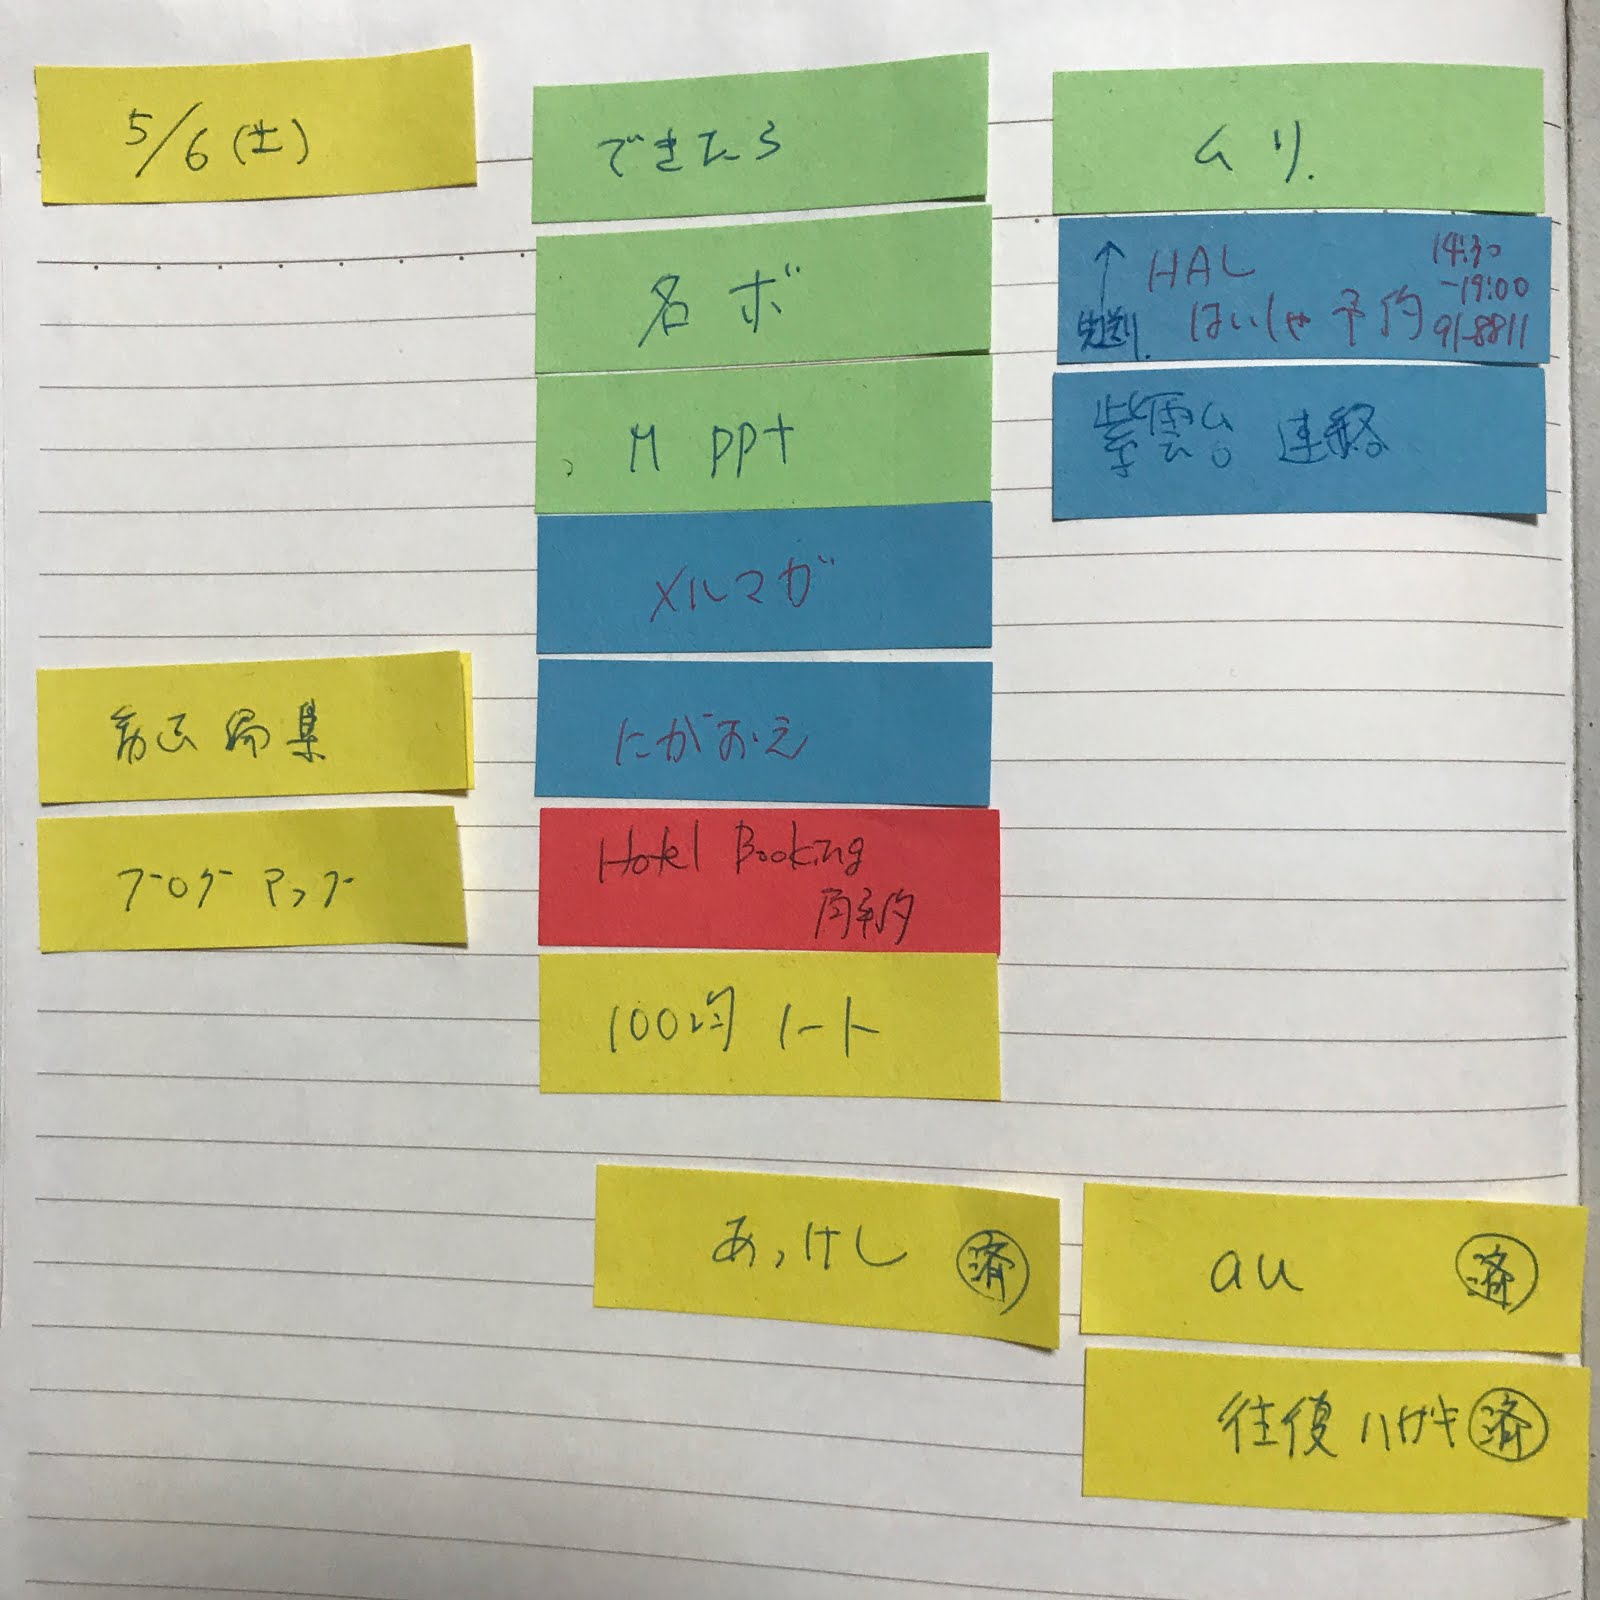 5/6(土)
動画編集
ブログアップ
できたら
名ボ
M ppt
メルマガ
にがおえ
Hotel Booking
解約
100均ノート
あっけし 済
ムリ.
↑
先送り.
HAL
はいしゃ予約
14:30
-19:00
91-8811
紫雲台 連絡
au 済
往復ハガキ 済